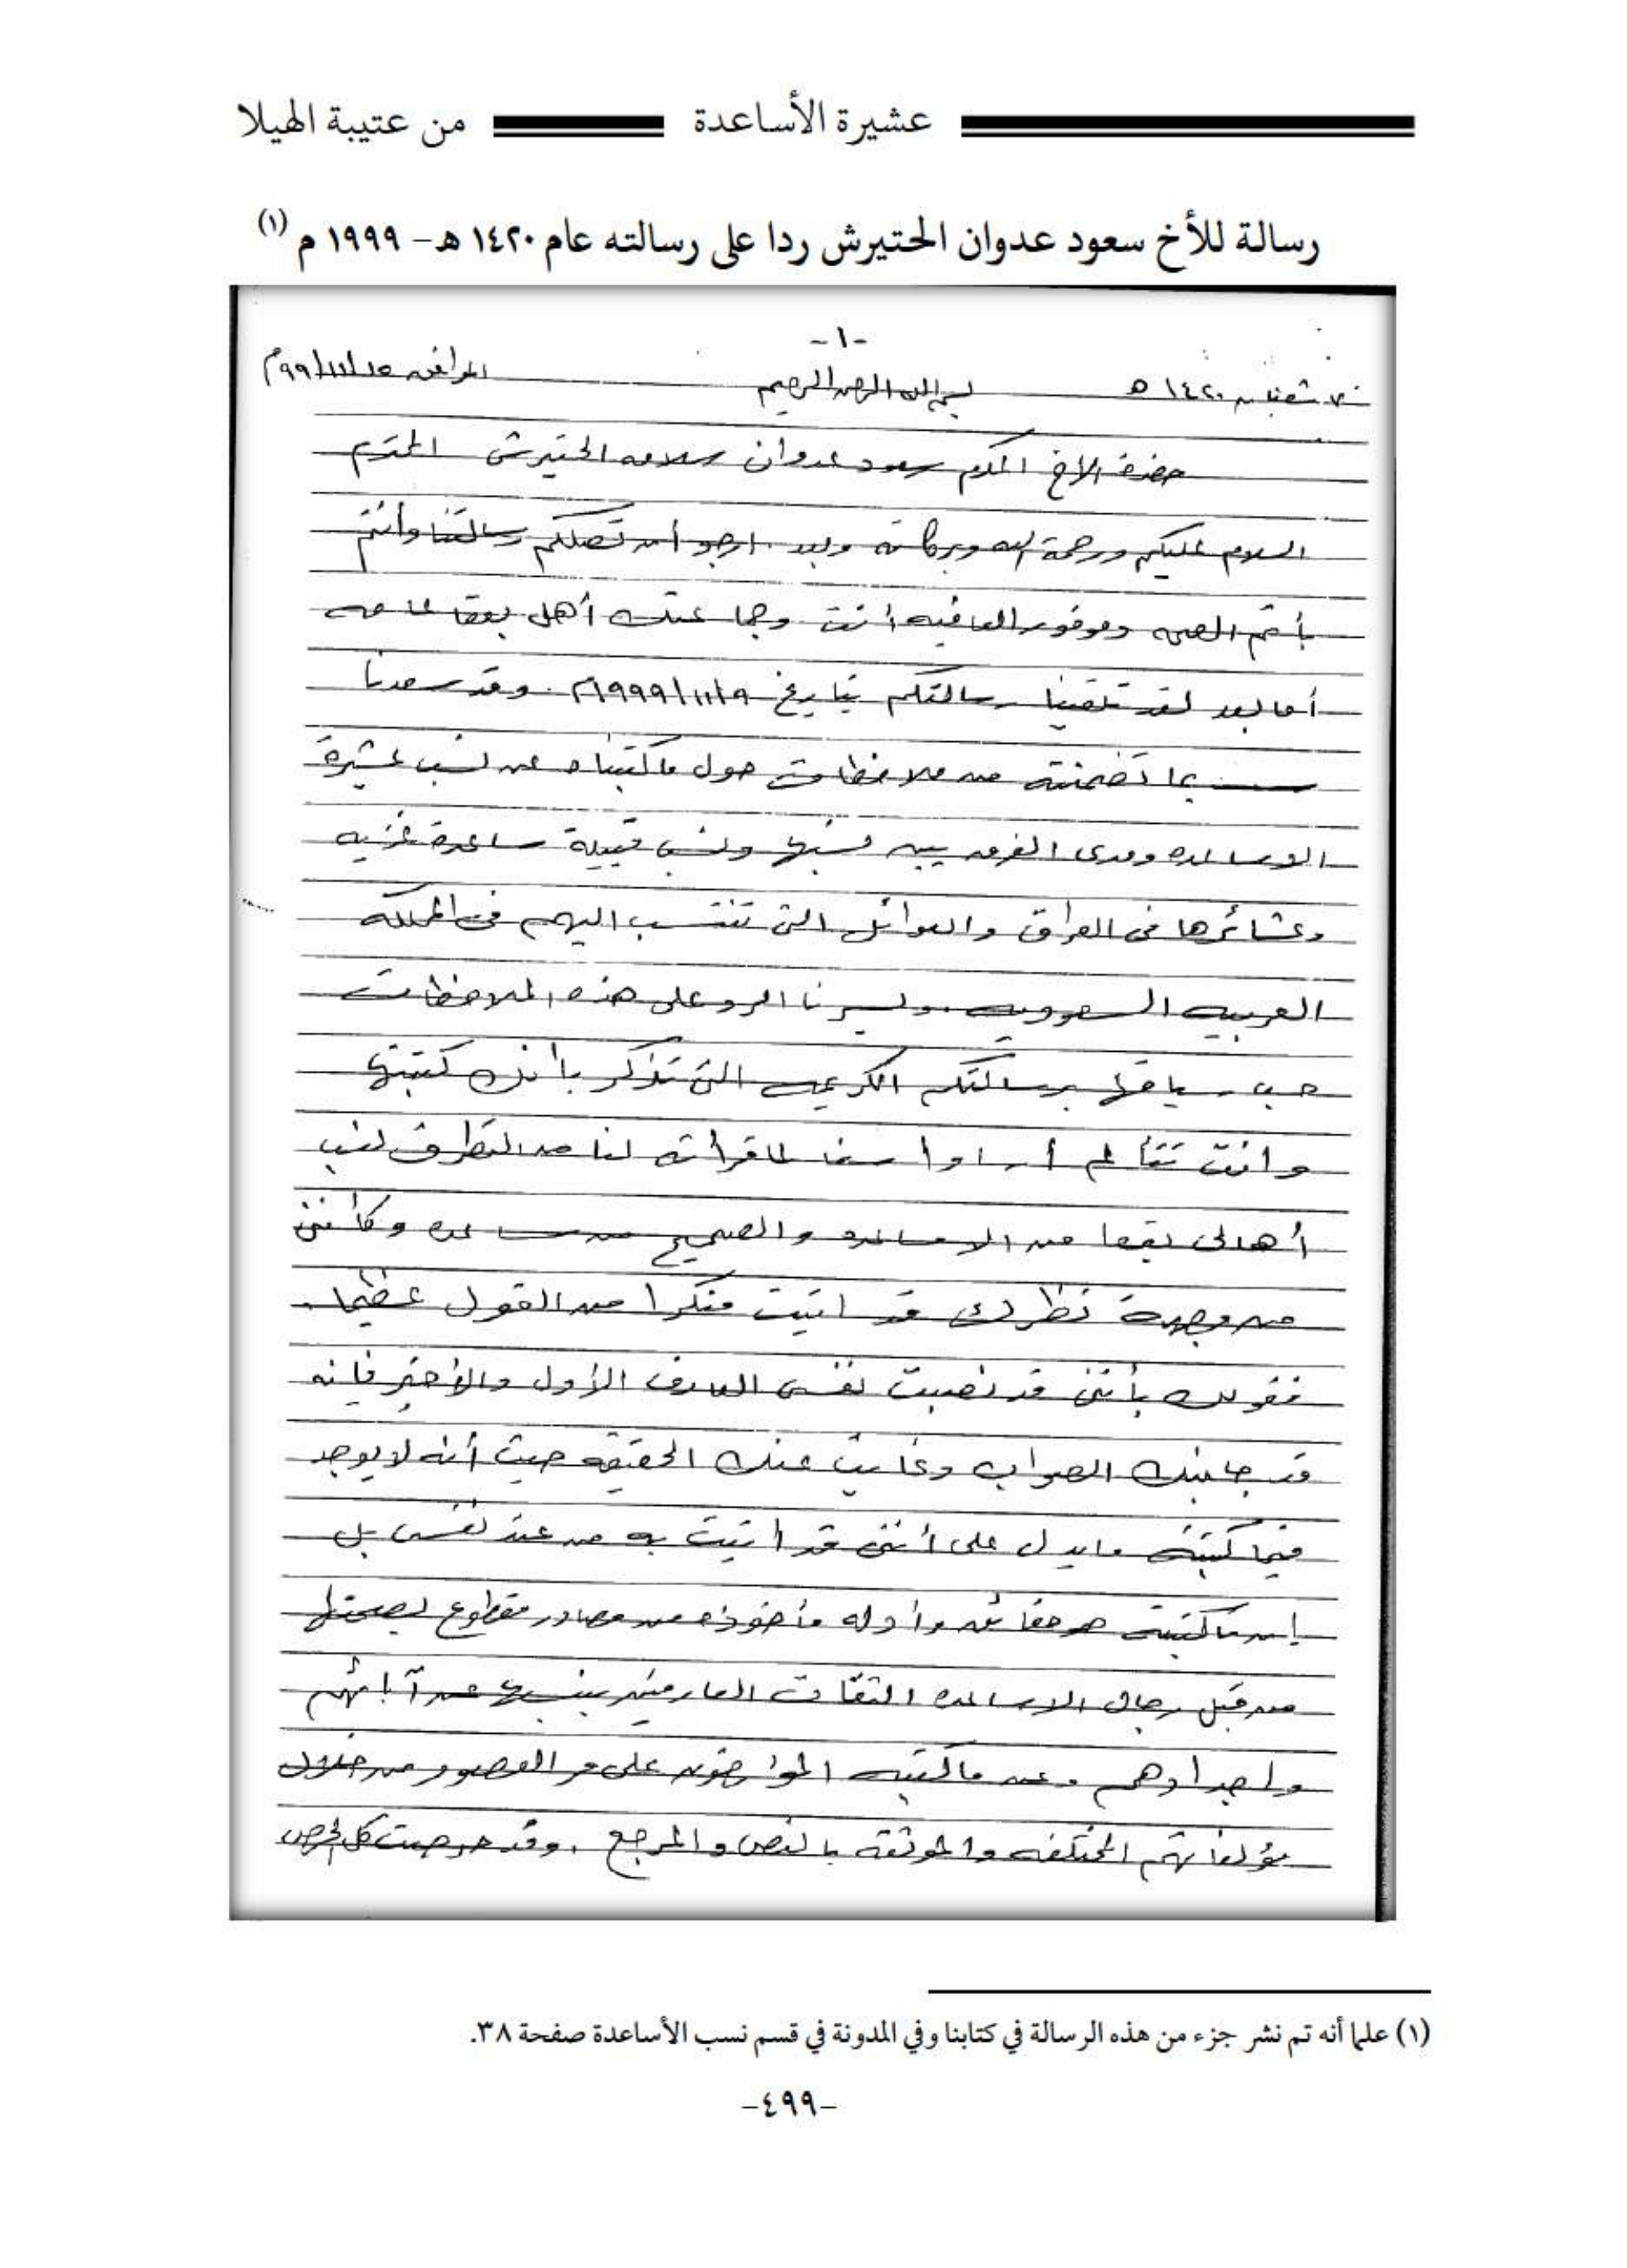 عشيرة الأساعدة من عتيبة الهيلا
رسالة للأخ سعود عدوان الحتيرش ردا على رسالته عام ١٤٢٠ هـ - ١٩٩٩ م (١)
-١-
شعبان ١٤٢٠ هـ بسم الله الرحمن الرحيم الموافق ١٥/١١/٩٩م
حضرة الاخ المكرم سعود عدوان سلامه الحتيرش المحترم
السلام عليكم ورحمة الله وبركاته وبعد. ارجو أن تصلكم رسالتنا وأنتم
بأتم الصحه وموفور العافيه أنت وجماعتك أهل بقعا
أما بعد لقد تلقينا رسالتكم بتاريخ ١٩٩٩/١١/٩م. وقد سعدنا
بما تضمنته من ملاحظات حول ماكتبناه عن نسب عشيرة
الاساعده ومدى الفرق بين نسبها ونسب قبيلة ساعدة غزيه
وعشائرها في العراق والعوائل التي تنتسب اليهم في المملكه
العربيه السعوديه. ويسرنا الرد على هذه الملاحظات
حسب سياقها برسالتكم الكريمه التي تذكر بأنك كتبتها
وانت تتألم أسا وأسفا لما قرأته لنا من التطرق لنسب
أهالى بقعا من الاساعده والصحيح من ساعده وكأنني
من وجهة نظرك قد اتيت منكرا من القول عظيما.
فقولك بأنني قد نصبت نفسى العارف الأول والأخير فإنه
قد جانبك الصواب وغابت عنك الحقيقه حيث أنه لا يوجد
فيما كتبته مايدل على أنني قد اتيت به من عند نفسى بل
إن ماكتبته هو حقائق وأدله مأخوذه من مصادر مقطوع بصحتها
من قبل رجال الاساعده الثقات العارفين بنسبها عن آبائهم
واجدادهم وعن ماكتبه المؤرخون على مر العصور من خلال
مؤلفاتهم المختلفه والموثقه بالنص والمرجع. وقد حرصت كل الحرص
(١) علما أنه تم نشر جزء من هذه الرسالة في كتابنا وفي المدونة في قسم نسب الأساعدة صفحة ٣٨.
-٤٩٩-